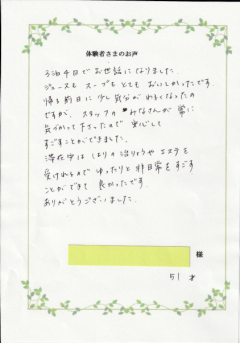 体験者さまのお声
3泊4日でお世話になりました。
ジュースもスープもとてもおいしかったです。
帰る前日に少し気分がわるくなったの
ですが、スタッフのみなさんが常に
気づかって下さったので安心して
すごすことができました。
滞在中ははりの治りょうやエステを
受けれるのでゆったりと非日常をすごす
ことができて良かったです。
ありがとうございました。
様
51才